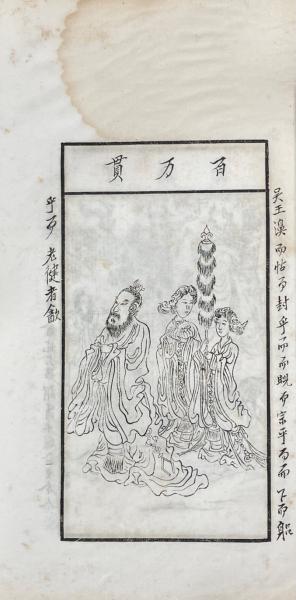 百万貫
吴王濞而怙而封乎而而贶而宗乎为而下而
乎而 老健者飲